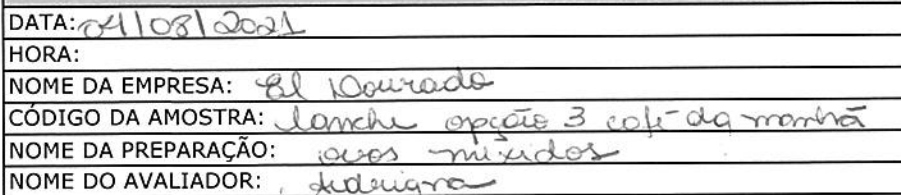 DATA: 04/08/2021
HORA:
NOME DA EMPRESA: El Dourado
CÓDIGO DA AMOSTRA: lanche opção 3 café da manhã
NOME DA PREPARAÇÃO: ovos mixidos
NOME DO AVALIADOR: